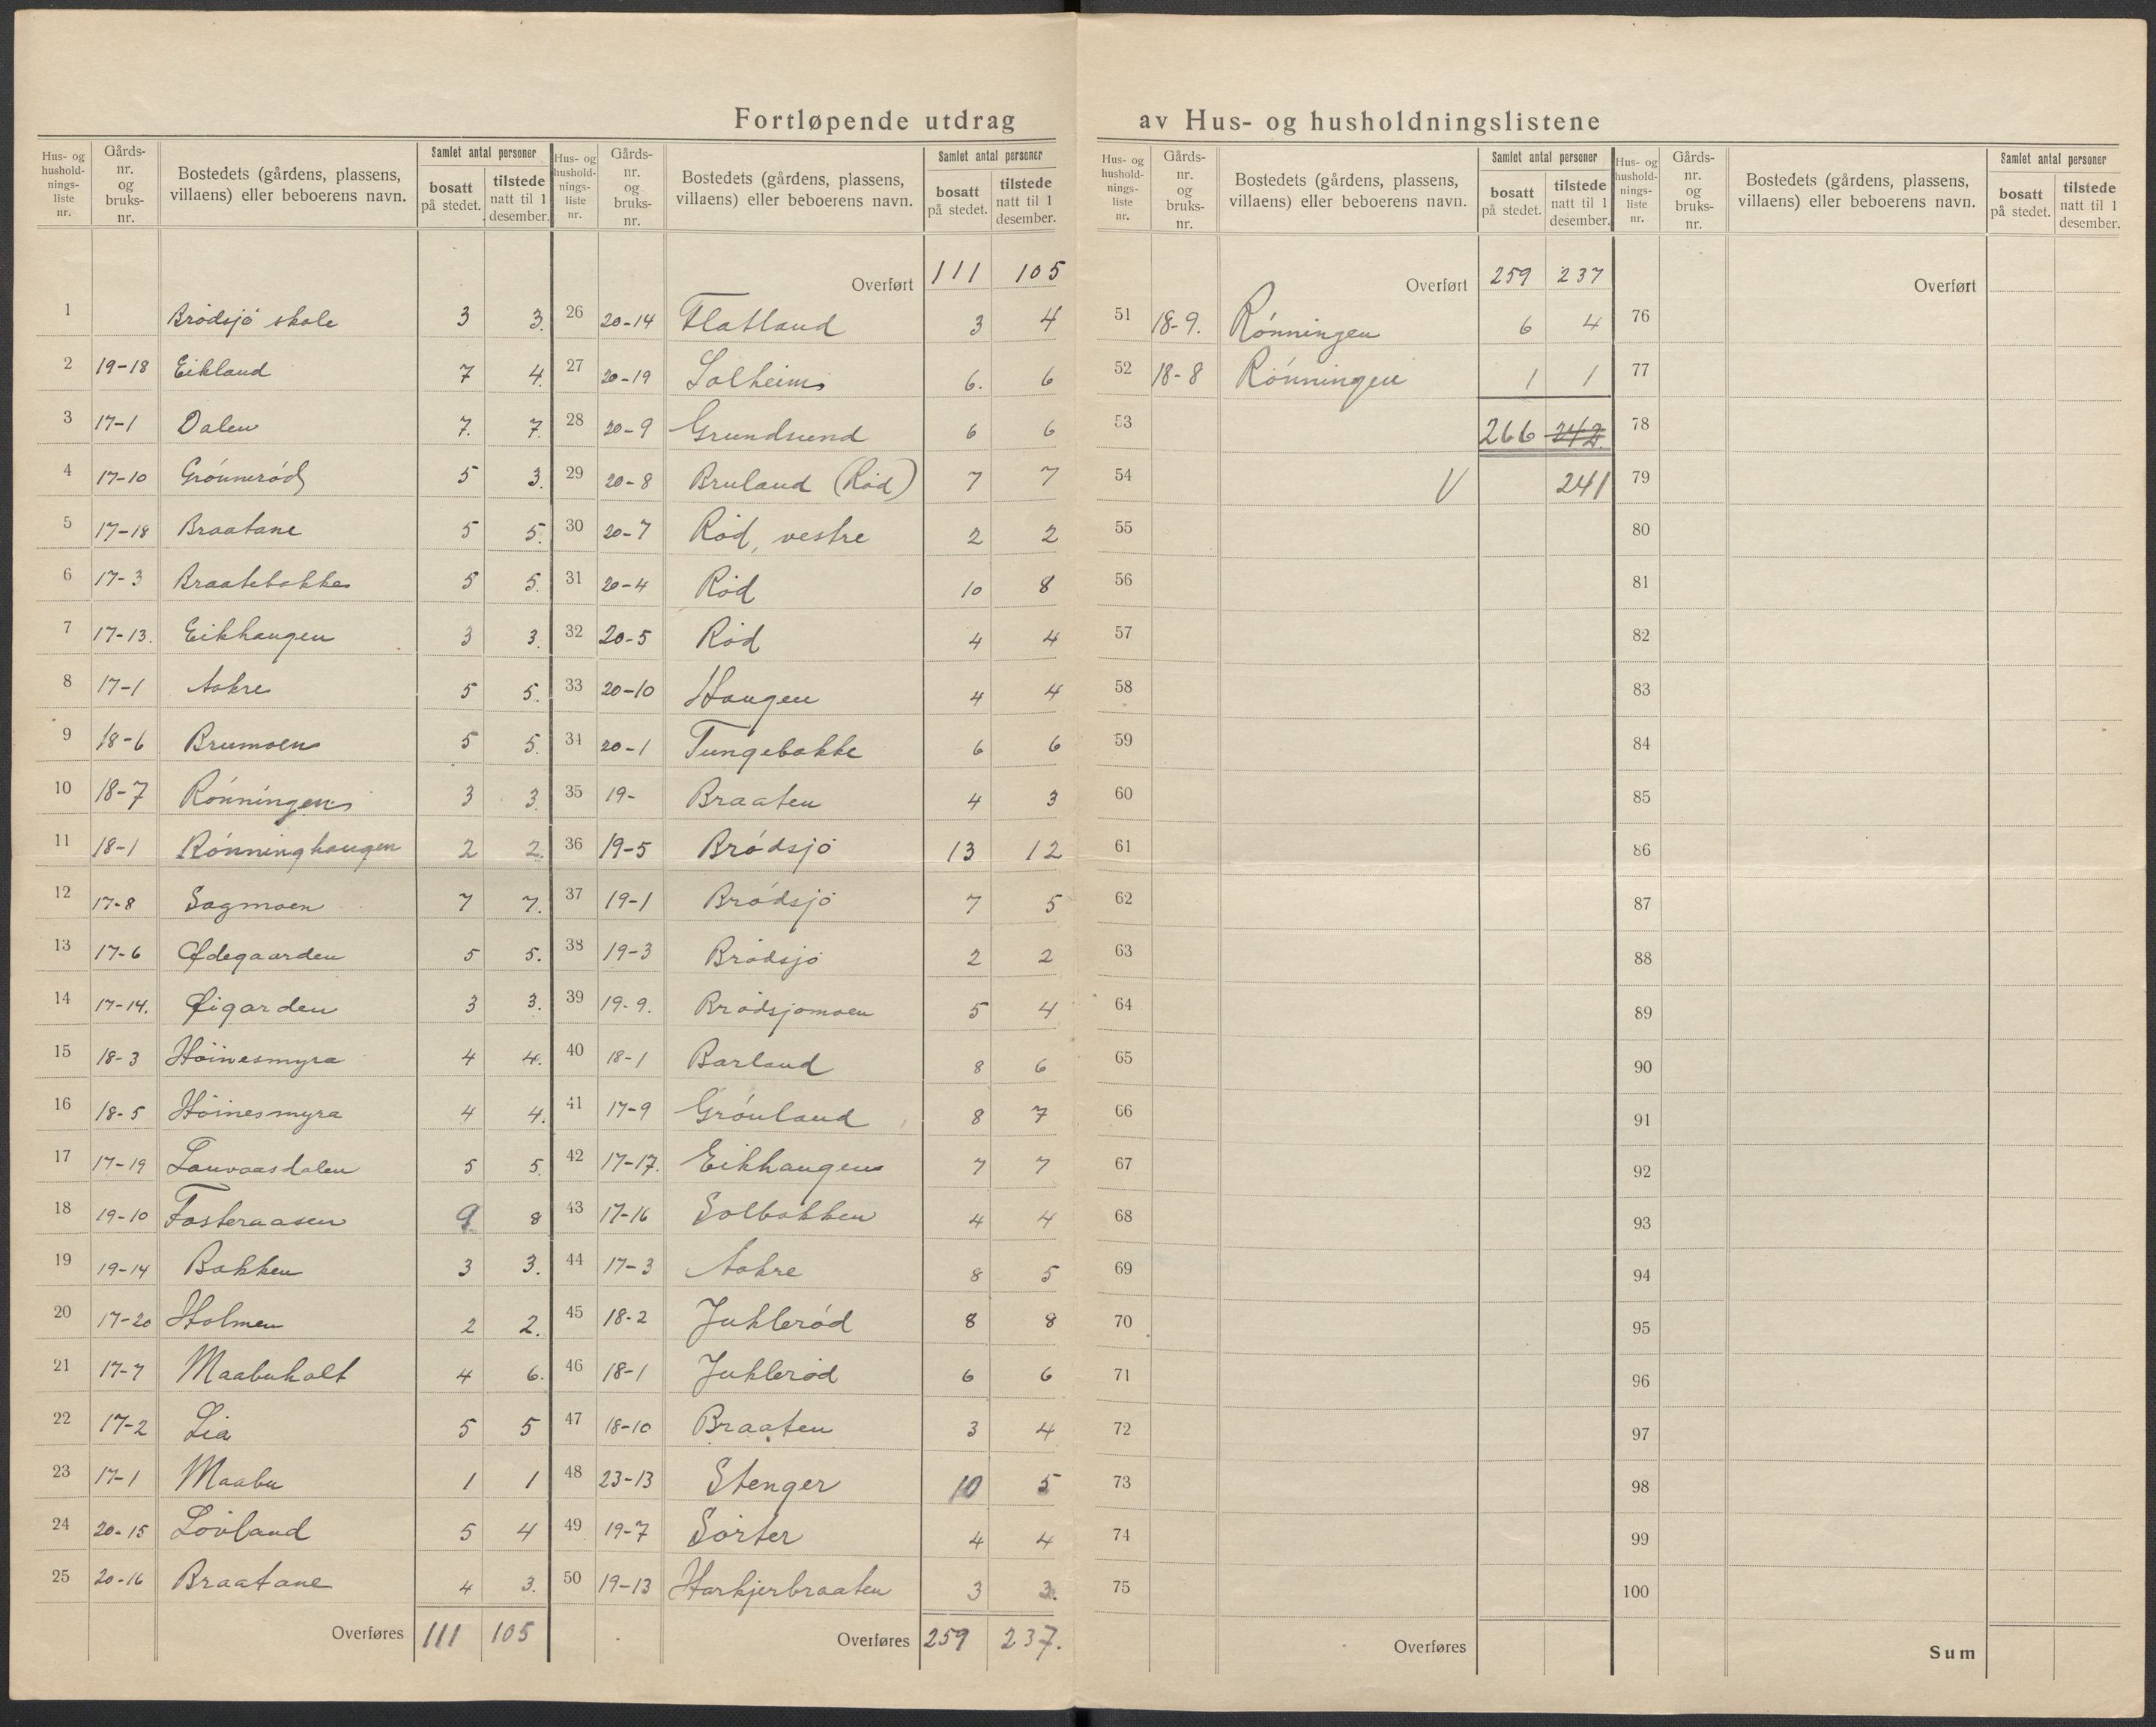 Fortløpende utdrag av Hus- og husholdningslistene
Hus- og hushold-nings-liste nr. | Gårds-nr. og bruks-nr. | Bostedets (gårdens, plassens, villaens) eller beboerens navn. | Samlet antal personer | bosatt på stedet. | tilstede natt til 1 desember.
1 Brødsjø skole 3 3.
2 19-18 Eikland 7 4.
3 17-1 Dalen 7. 7.
4 17-10 Grønnerød 5 3.
5 17-18 Braatane 5 5.
6 17-3 Braatebakke 5 5.
7 17-13. Eikhaugen 3 3.
8 17-1 Aakre 5 5.
9 18-6 Brumoen 5 5.
10 18-7 Rønningen 3 3.
11 18-1 Rønninghaugen 2 2.
12 17-8 Sagmoen 7 7.
13 17-6 Ødegaarden 5 5.
14 17-14. Øigarden 3 3.
15 18-3 Høinesmyra 4 4.
16 18-5 Høinesmyra 4 4.
17 17-19 Lauvaasdalen 5 5.
18 19-10 Fosteraasen 9 8
19 19-14 Bakken 3 3.
20 17-20 Holmen 2 2.
21 17-7 Maabuholt 4 6.
22 17-2 Lia 5 5
23 17-1 Maabu 1 1
24 20-15 Løvland 5 4
25 20-16 Braatane 4 3.
Overføres 111 105
Hus- og hushold-nings-liste nr. | Gårds-nr. og bruks-nr. | Bostedets (gårdens, plassens, villaens) eller beboerens navn. | Samlet antal personer | bosatt på stedet. | tilstede natt til 1 desember.
Overført 111 105
26 20-14 Flatland 3 4
27 20-19 Solheim 6. 6
28 20-9 Grundsund 6 6
29 20-8 Bruland (Rød) 7 7
30 20-7 Rød, vestre 2 2
31 20-4 Rød 10 8
32 20-5 Rød 4 4
33 20-10 Haugen 4 4
34 20-1 Tungebakke 6 6
35 19- Braaten 4 3
36 19-5 Brødsjø 13 12
37 19-1 Brødsjø 7 5
38 19-3 Brødsjø 2 2
39 19-9. Brødsjømoen 5 4
40 18-1 Barland 8 6
41 17-9 Grønland 8 7
42 17-17. Eikhaugen 7 7
43 17-16 Solbakken 4 4
44 17-3 Aakre 8 5
45 18-2 Juklerød 8 8
46 18-1 Juklerød 6 6
47 18-10 Braaten 3 4
48 23-13 Stenger 10 5
49 19-7 Sørter 4 4
50 19-13 Harkjerbraaten 3 3.
Overføres 259 237.
Hus- og hushold-nings-liste nr. | Gårds-nr. og bruks-nr. | Bostedets (gårdens, plassens, villaens) eller beboerens navn. | Samlet antal personer | bosatt på stedet. | tilstede natt til 1 desember.
Overført 259 237
51 18-9. Rønningen 6 4
52 18-8 Rønningen 1 1
53 266 242.
54 V 241
55
56
57
58
59
60
61
62
63
64
65
66
67
68
69
70
71
72
73
74
75
Overføres
Hus- og hushold-nings-liste nr. | Gårds-nr. og bruks-nr. | Bostedets (gårdens, plassens, villaens) eller beboerens navn. | Samlet antal personer | bosatt på stedet. | tilstede natt til 1 desember.
Overført
76
77
78
79
80
81
82
83
84
85
86
87
88
89
90
91
92
93
94
95
96
97
98
99
100
Sum